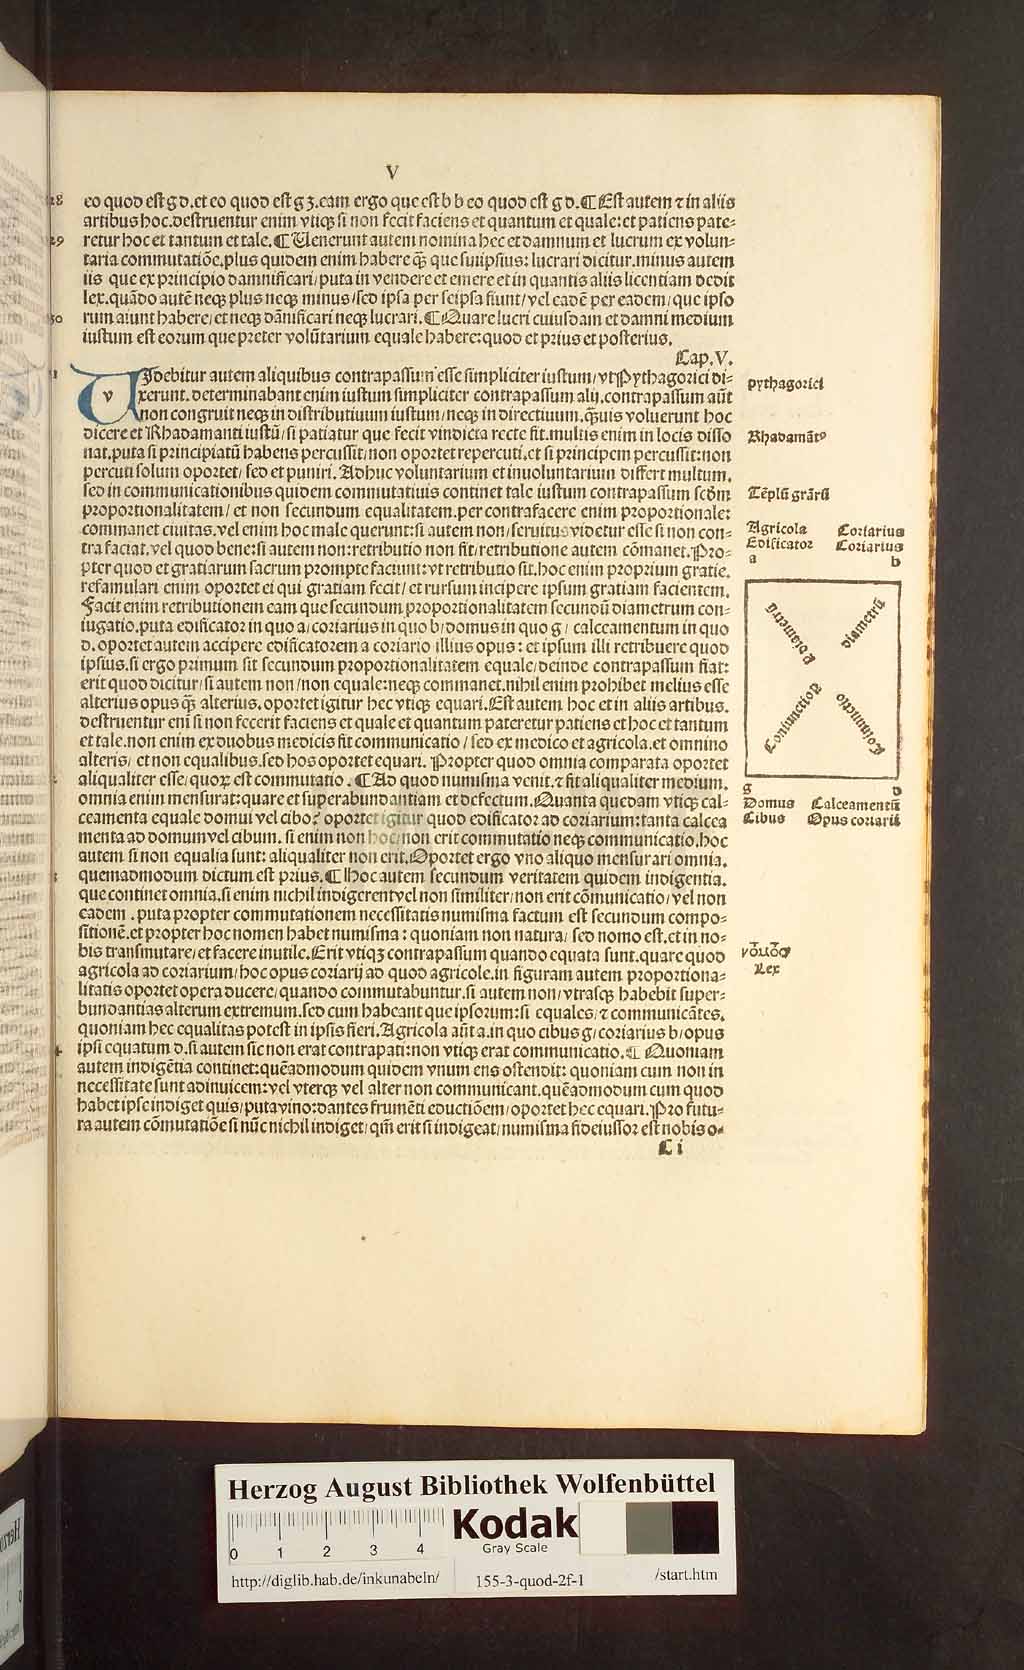 V
28 eo quod est g d. et eo quod est g ʒ. eam ergo que est b b eo quod est g d. ¶ Est autem ⁊ in aliis
artibus hoc. destruentur enim vtiqʒ si non fecit faciens et quantum et quale: et patiens pate⸗
29 retur hoc et tantum et tale. ¶ Uenerunt autem nomina hec et damnum et lucrum ex volun⸗
taria commutatiōe. plus quidem enim habere qʒ que sui ipsius: lucrari dicitur. minus autem
iis que ex principio damnificari/ puta in vendere et emere et in quantis aliis licentiam dedit
lex. quādo autē neqʒ plus neqʒ minus/ sed ipsa per seipsa fiunt/ vel eadē per eadem/ que ipso
30 rum aiunt habere/ et neqʒ dānificari neqʒ lucrari. ¶ Quare lucri cuiusdam et damni medium
iustum est eorum que preter volūtarium equale habere: quod et prius et posterius.
Cap. V.
1 VIdebitur autem aliquibus contrapassum esse simpliciter iustum/ vt Pythagorici di⸗
v xerunt. determinabant enim iustum simpliciter contrapassum alij. contrapassum aūt
non congruit neqʒ in distributiuum iustum/ neqʒ in directiuum. qʒuis voluerunt hoc
dicere et Rhadamanti iustū/ si patiatur que fecit vindicta recte fit. multis enim in locis disso
nat. puta si principiatū habens percussit/ non oportet repercuti. et si principem percussit: non
percuti solum oportet/ sed et puniri. Adhuc voluntarium et inuoluntarium differt multum.
sed in communicationibus quidem commutatiuis continet tale iustum contrapassum scdm̄
proportionalitatem/ et non secundum equalitatem. per contrafacere enim proportionale:
commanet ciuitas. vel enim hoc male querunt: si autem non/ seruitus videtur esse si non con⸗
tra faciat. vel quod bene: si autem non: retributio non fit/ retributione autem cōmanet. Pro⸗
pter quod et gratiarum sacrum prompte faciunt: vt retributio sit. hoc enim proprium gratie.
refamulari enim oportet ei qui gratiam fecit/ et rursum incipere ipsum gratiam facientem.
Facit enim retributionem eam que secundum proportionalitatem secundū diametrum con⸗
iugatio. puta edificator in quo a/ coriarius in quo b/ domus in quo g/ calceamentum in quo
d. oportet autem accipere edificatorem a coriario illius opus: et ipsum illi retribuere quod
ipsius. si ergo primum sit secundum proportionalitatem equale/ deinde contrapassum fiat:
erit quod dicitur/ si autem non/ non equale: neqʒ commanet. nihil enim prohibet melius esse
alterius opus qʒ alterius. oportet igitur hec vtiqʒ equari. Est autem hoc et in aliis artibus.
destruentur eni si non fecerit faciens et quale et quantum pateretur patiens et hoc et tantum
et tale. non enim ex duobus medicis fit communicatio/ sed ex medico et agricola. et omnino
alteris/ et non equalibus. sed hos oportet equari. Propter quod omnia comparata oportet
aliqualiter esse/ quorꝝ est commutatio. ¶ Ad quod numisma venit. ⁊ fit aliqualiter medium.
omnia enim mensurat: quare et superabundantiam et defectum. Quanta quedam vtiqʒ cal⸗
ceamenta equale domui vel cibo? oportet igitur quod edificator ad coriarium: tanta calcea
menta ad domum vel cibum. si enim non hoc/ non erit commutatio neqʒ communicatio. hoc
autem si non equalia sunt: aliqualiter non erit. Oportet ergo vno aliquo mensurari omnia.
quemadmodum dictum est prius. ¶ Hoc autem secundum veritatem quidem indigentia.
que continet omnia. si enim nichil indigerent vel non similiter/ non erit cōmunicatio/ vel non
eadem. puta propter commutationem necessitatis numisma factum est secundum compo⸗
sitionē. et propter hoc nomen habet numisma: quoniam non natura/ sed nomo est. et in no⸗
bis transmutare/ et facere inutile. Erit vtiqʒ contrapassum quando equata sunt. quare quod
agricola ad coriarium/ hoc opus coriarij ad quod agricole. in figuram autem proportiona⸗
litatis oportet opera ducere/ quando commutabuntur. si autem non/ vtrasqʒ habebit super⸗
bundantias alterum extremum. sed cum habeant que ipsorum: si equales/ ⁊ communicātes.
quoniam hec equalitas potest in ipsis fieri. Agricola aūt a. in quo cibus g/ coriarius b/ opus
4 ipsi equatum d. si autem sic non erat contrapati: non vtiqʒ erat communicatio. ¶ Quoniam
autem indigētia continet: quēadmodum quidem vnum ens ostendit: quoniam cum non in
necessitate sunt adinuicem: vel vterqʒ vel alter non communicant. quēadmodum cum quod
habet ipse indiget quis/ puta vino: dantes frumēti eductiōem/ oportet hec equari. Pro futu⸗
ra autem cōmutatiōe si nūc nichil indiget/ qm̄ erit si indigeat/ numisma fideiussor est nobis o⸗
C i
pythagorici
Rhadamātꝰ
Tēplū grārū
Agricola Coriarius
Edificator Coriarius
a b
diametrū
diametrū
Coniunctio
Coniunctio
g d
Domus Calceamentū
Cibus Opus coriarii
νόμος
Lex
Herzog August Bibliothek Wolfenbüttel
0 1 2 3 4
Kodak
Gray Scale
http://diglib.hab.de/inkunabeln/ 155-3-quod-2f-1 /start.htm